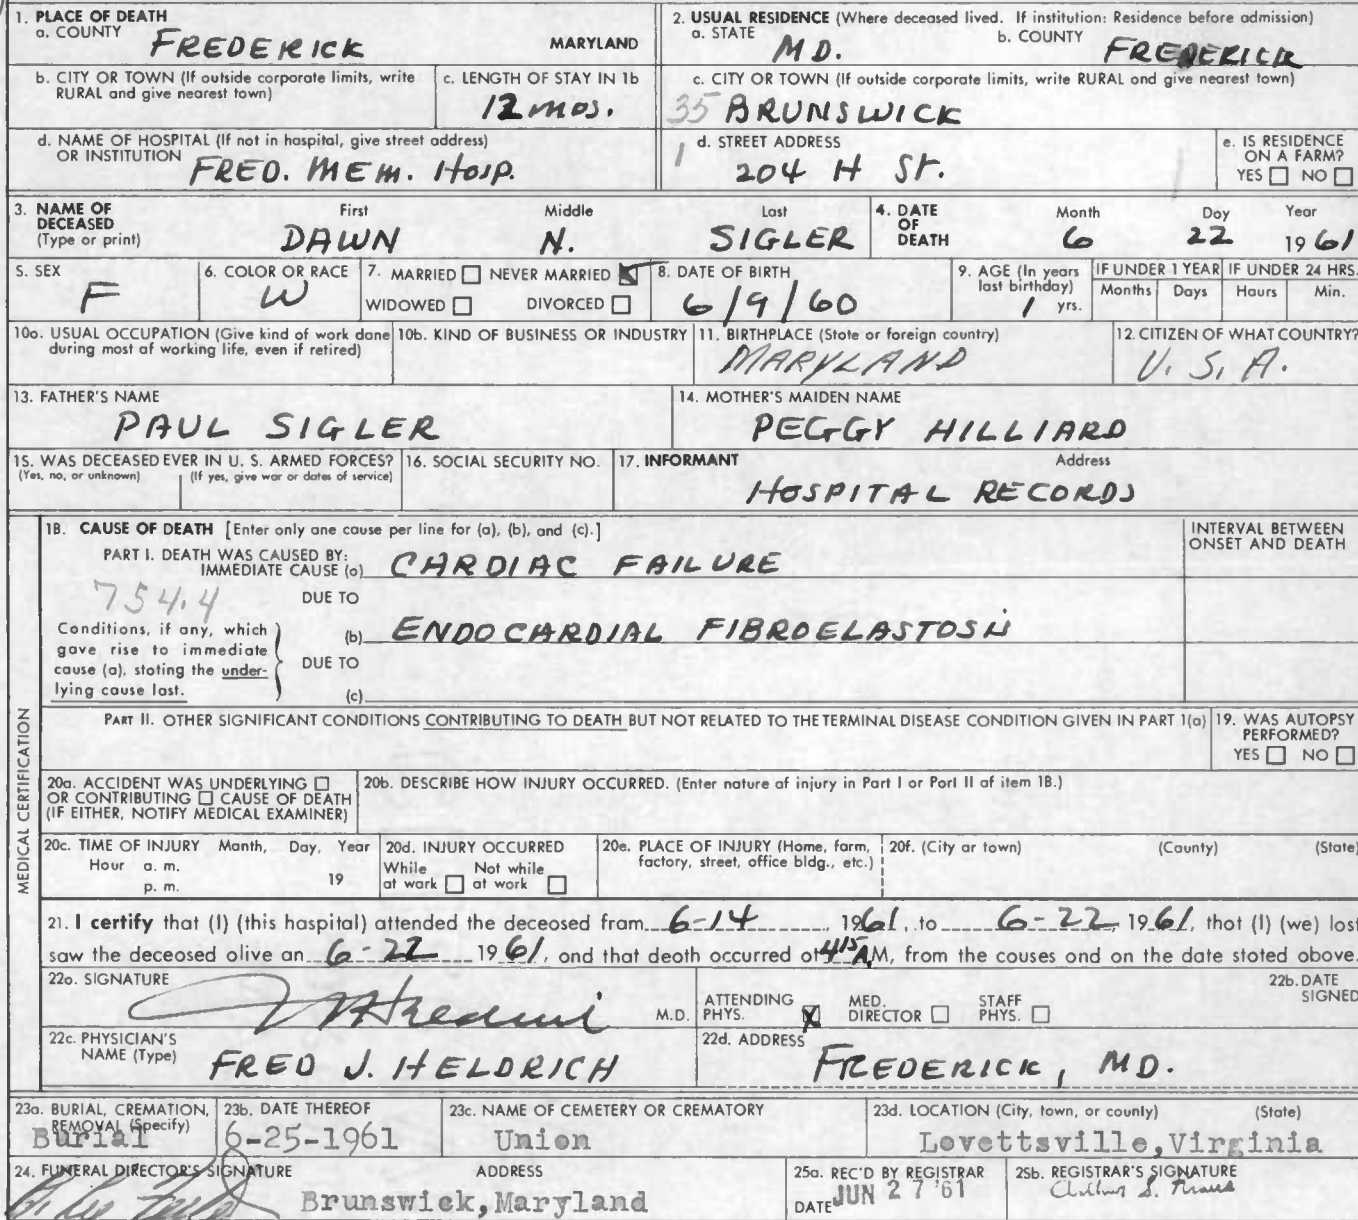 1. PLACE OF DEATH
a. COUNTY FREDERICK MARYLAND
2. USUAL RESIDENCE (Where deceased lived. If institution: Residence before admission)
a. STATE M.D. b. COUNTY FREDERICK
b. CITY OR TOWN (If outside corporate limits, write RURAL and give nearest town)
c. LENGTH OF STAY IN 1b
12 mos.
c. CITY OR TOWN (If outside corporate limits, write RURAL and give nearest town)
35 BRUNSWICK
d. NAME OF HOSPITAL (If not in hospital, give street address)
OR INSTITUTION FRED. MEM. HOSP.
d. STREET ADDRESS
204 H ST.
e. IS RESIDENCE ON A FARM?
YES NO
3. NAME OF DECEASED (Type or print)
First Middle Last
DAWN N. SIGLER
4. DATE OF DEATH
Month Day Year
6 22 1961
5. SEX
F
6. COLOR OR RACE
W
7. MARRIED NEVER MARRIED
WIDOWED DIVORCED
8. DATE OF BIRTH
6/9/60
9. AGE (In years last birthday)
1 yrs.
IF UNDER 1 YEAR IF UNDER 24 HRS.
Months Days Hours Min.
10a. USUAL OCCUPATION (Give kind of work done during most of working life, even if retired)
10b. KIND OF BUSINESS OR INDUSTRY
11. BIRTHPLACE (State or foreign country)
MARYLAND
12. CITIZEN OF WHAT COUNTRY?
U. S. A.
13. FATHER'S NAME
PAUL SIGLER
14. MOTHER'S MAIDEN NAME
PEGGY HILLIARD
15. WAS DECEASED EVER IN U. S. ARMED FORCES?
(Yes, no, or unknown) (If yes, give war or dates of service)
16. SOCIAL SECURITY NO.
17. INFORMANT Address
HOSPITAL RECORDS
MEDICAL CERTIFICATION
18. CAUSE OF DEATH [Enter only one cause per line for (a), (b), and (c).]
INTERVAL BETWEEN ONSET AND DEATH
PART I. DEATH WAS CAUSED BY:
IMMEDIATE CAUSE (a) CARDIAC FAILURE
754.4
DUE TO
Conditions, if any, which gave rise to immediate cause (a), stating the underlying cause last.
(b) ENDOCARDIAL FIBROELASTOSIS
DUE TO
(c)
PART II. OTHER SIGNIFICANT CONDITIONS CONTRIBUTING TO DEATH BUT NOT RELATED TO THE TERMINAL DISEASE CONDITION GIVEN IN PART 1(a)
19. WAS AUTOPSY PERFORMED?
YES NO
20a. ACCIDENT WAS UNDERLYING
OR CONTRIBUTING CAUSE OF DEATH
(IF EITHER, NOTIFY MEDICAL EXAMINER)
20b. DESCRIBE HOW INJURY OCCURRED. (Enter nature of injury in Part I or Part II of item 18.)
20c. TIME OF INJURY Month, Day, Year
Hour a. m.
p. m. 19
20d. INJURY OCCURRED
While at work Not while at work
20e. PLACE OF INJURY (Home, farm, factory, street, office bldg., etc.)
20f. (City or town) (County) (State)
21. I certify that (I) (this hospital) attended the deceased from 6-14, 1961, to 6-22, 1961, that (I) (we) last
saw the deceased alive on 6-22 1961, and that death occurred at 4 15 AM, from the causes and on the date stated above.
22a. SIGNATURE
M.D.
ATTENDING PHYS. X MED. DIRECTOR STAFF PHYS.
22b. DATE SIGNED
22c. PHYSICIAN'S NAME (Type)
FRED J. HELDRICH
22d. ADDRESS
FREDERICK, MD.
23a. BURIAL, CREMATION, REMOVAL (Specify)
Burial
23b. DATE THEREOF
6-25-1961
23c. NAME OF CEMETERY OR CREMATORY
Union
23d. LOCATION (City, town, or county) (State)
Lovettsville,Virginia
24. FUNERAL DIRECTOR'S SIGNATURE ADDRESS
Brunswick,Maryland
25a. REC'D BY REGISTRAR
DATE JUN 27 '61
25b. REGISTRAR'S SIGNATURE